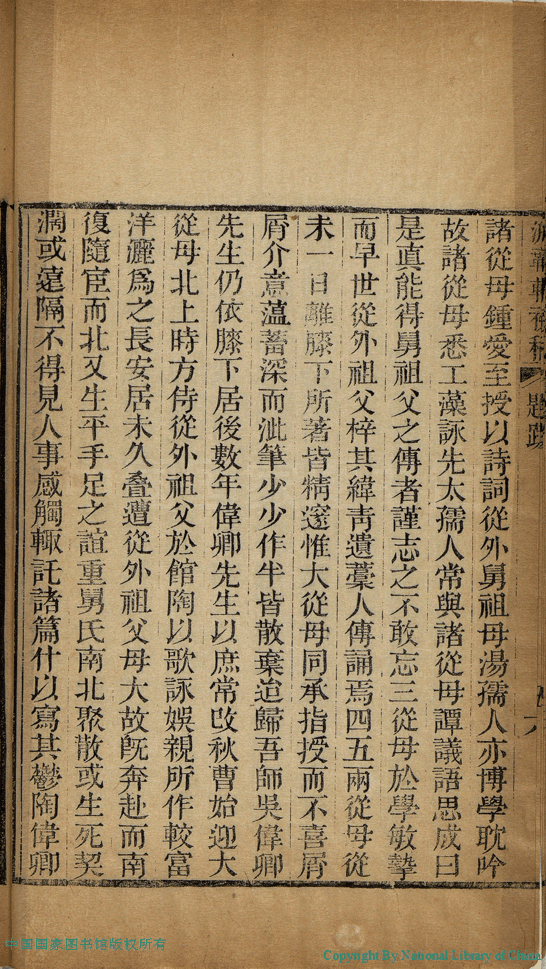 題跋
諸從母鍾愛至授以詩詞從外舅祖母湯孺人亦博學耽吟
故諸從母悉工藻詠先太孺人常與諸從母譚議語思成曰
是真能得舅祖父之傳者謹志之不敢忘三從母於學敏摯
而早世從外祖父梓其緯青遺藁人傳誦焉四五兩從母從
未一日離膝下所著皆精邃惟大從母同承指授而不喜屑
屑介意薀蓄深而泚筆少少作半皆散棄迨歸吾師吳偉卿
先生仍依膝下居後數年偉卿先生以庶常改秋曹始迎大
從母北上時方侍從外祖父於館陶以歌詠娛親所作較富
洋灑為之長安居未久叠遭從外祖父母大故旣奔赴而南
復隨宦而北又生平手足之誼重舅氏南北聚散或生死契
濶或遠隔不得見人事感觸輙託諸篇什以寫其鬱陶偉卿
中国国家图书馆版权所有
Copyright By National Library of China